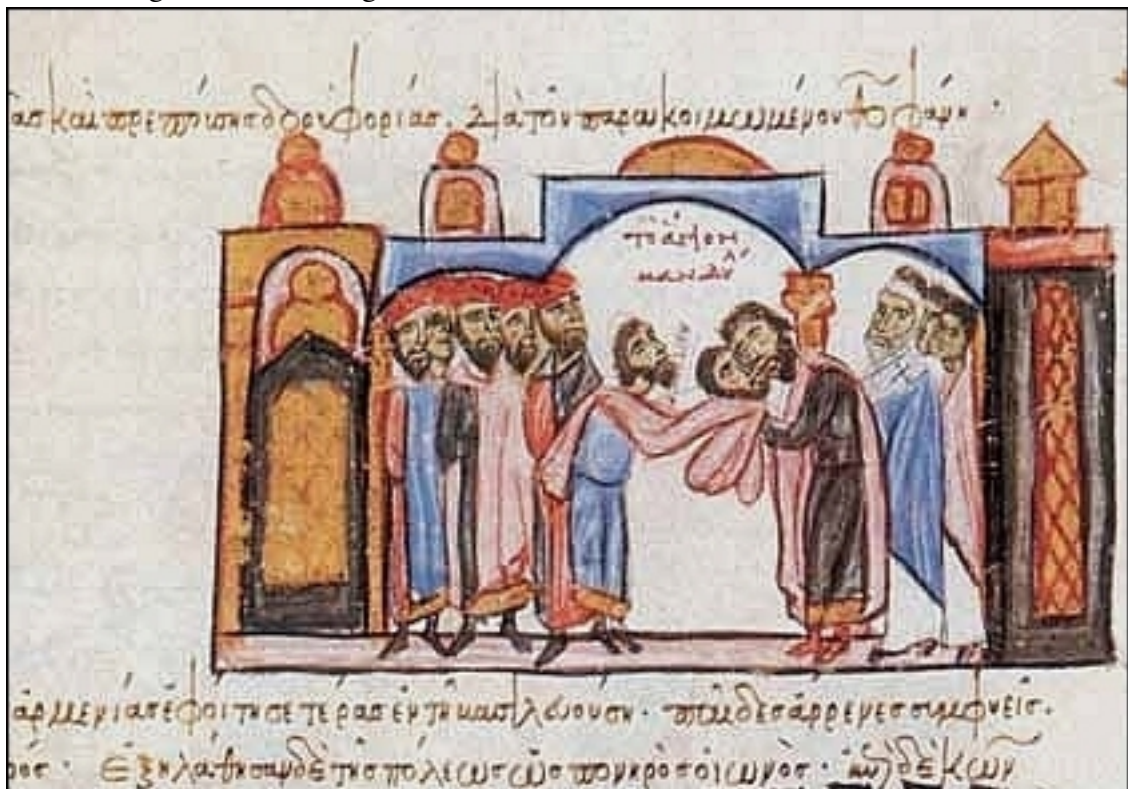 καὶ πρεπούσης δορυφορίας. διὰ τοῦ παρακοιμωμένου
τὸ ἅγιον
μανδύλ
ἀρμενίας ἐφοίτησε τέρας ἐν τῇ βασιλευούσῃ. παῖδες ἄρρενες συμφυεῖς.
ἐξηλάθησαν δὲ τῆς πόλεως ὡς πονηρὸς οἰωνός.